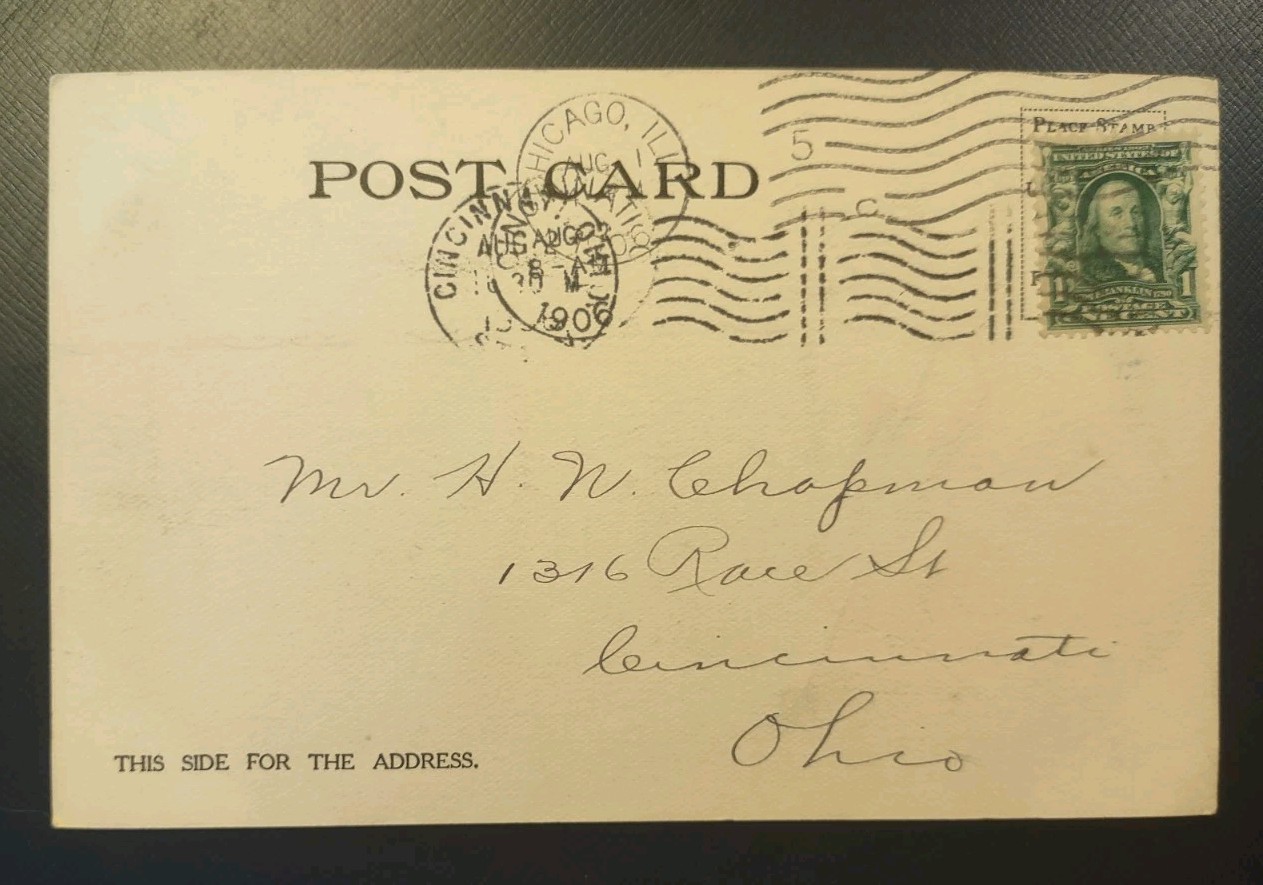 POST CARD
CHICAGO, ILL.
AUG 1
5
C
PLACE STAMP
UNITED STATES OF
AMERICA
FRANKLIN
1
CINCINNATI
AUG 2
AUG
8 - AM
1906
Mr. H. N. Chapman
1316 Race St
Cincinnati
Ohio
THIS SIDE FOR THE ADDRESS.